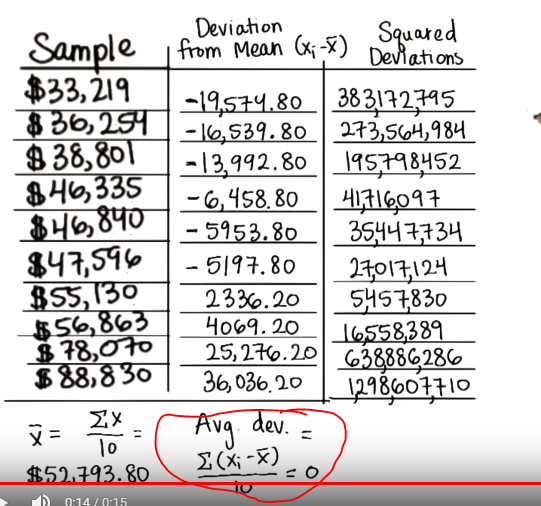 Sample Deviation from Mean (xᵢ-x̄) Squared Deviations
$33,219 -19,574.80 383,172,795
$36,254 -16,539.80 273,564,984
$38,801 -13,992.80 195,798,452
$46,335 -6,458.80 41,716,097
$46,840 -5953.80 35,447,734
$47,596 -5197.80 27,017,124
$55,130 2336.20 5,457,830
$56,863 4069.20 16,558,389
$78,070 25,276.20 638,886,286
$88,830 36,036.20 1,298,607,710
x̄ = Σx/10 = $52,793.80
Avg. dev. = Σ(xᵢ-x̄)/10 = 0
0:14 / 0:15